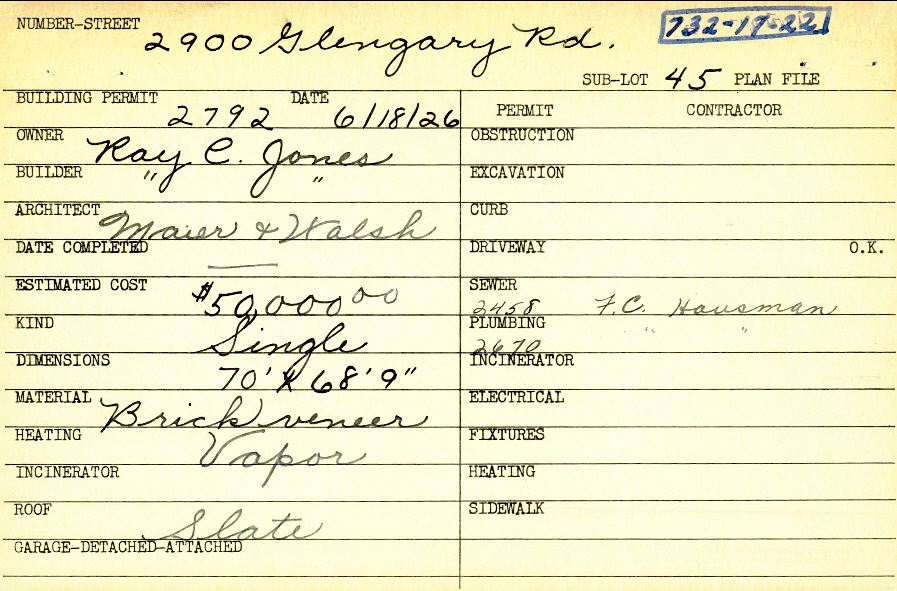 NUMBER-STREET 2900 Glengary Rd. 732-17-22
SUB-LOT 45 PLAN FILE
BUILDING PERMIT 2792 DATE 6/18/26
OWNER Ray C. Jones
BUILDER " "
ARCHITECT Maier & Walsh
DATE COMPLETED —
ESTIMATED COST $50,000 00
KIND Single
DIMENSIONS 70' X 68' 9"
MATERIAL Brick veneer
HEATING Vapor
INCINERATOR
ROOF Slate
GARAGE-DETACHED-ATTACHED
PERMIT CONTRACTOR
OBSTRUCTION
EXCAVATION
CURB
DRIVEWAY O.K.
SEWER
2458 F.C. Hausman
PLUMBING " "
2670
INCINERATOR
ELECTRICAL
FIXTURES
HEATING
SIDEWALK